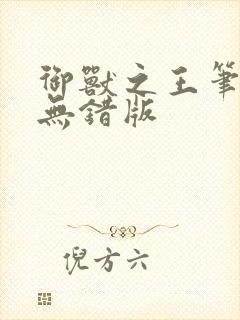 御獸之王筆
無錯版
倪方六